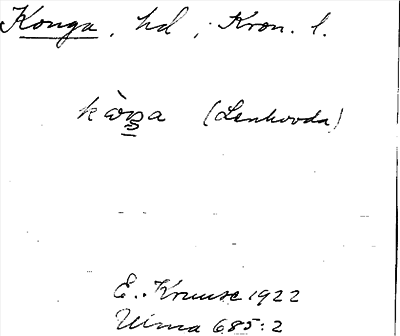 Konga, hd, Kron. l.
kòŋa (Lenhovda)
E. Kruuse 1922
Ulma 685:2